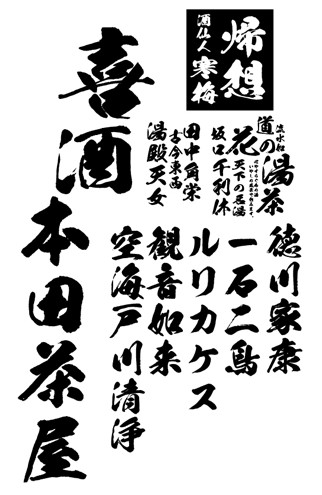 帰想
酒仙人
寒梅
喜酒
本田茶屋
道の
湯茶
花
天下の名湯
坂口千利休
田中角栄
古今東西
湯殿天女
徳川家康
一石二鳥
ルリカケス
観音如来
空海戸川清浄